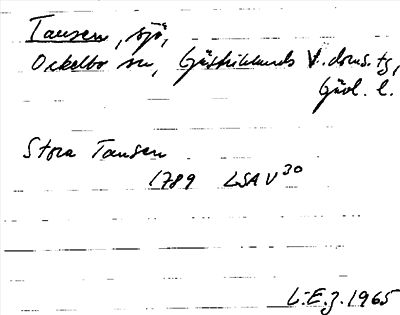 Tansen, sjö,
Ockelbo sn, Gästriklands V. doms. tg,
Gävl. l.
Stora Tansen
1789 LSA V30
L.E.Z. 1965